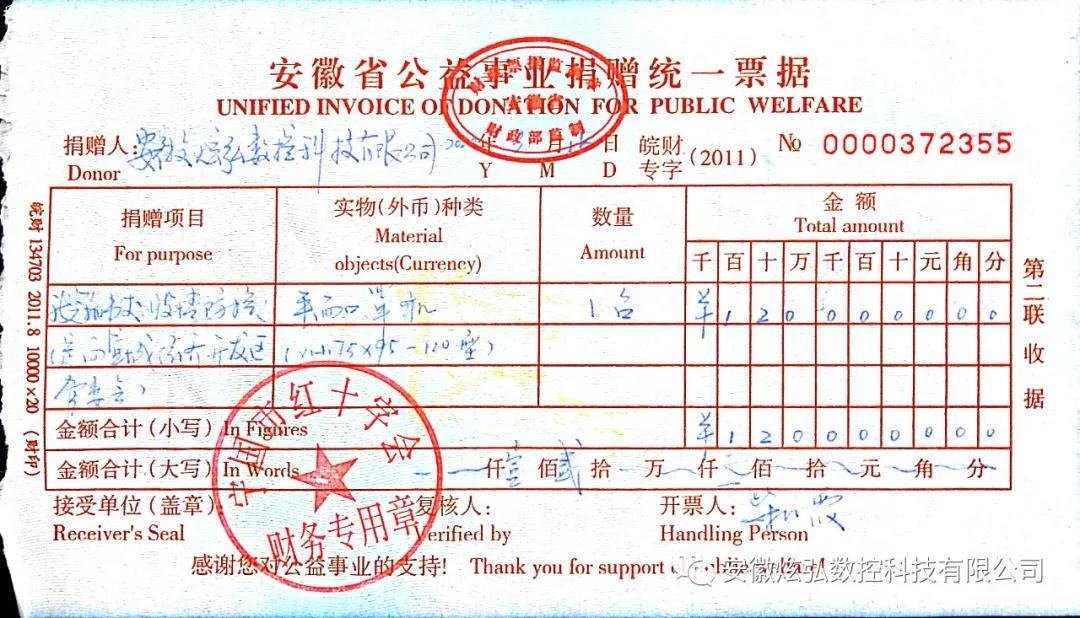 安徽省公益事业捐赠统一票据
UNIFIED INVOICE OF DONATION FOR PUBLIC WELFARE
安徽省
财政部监制
捐赠人: 安徽炫弘数控科技有限公司 20 年 月 日 皖财专字(2011) № 0000372355
Donor Y M D
捐赠项目 实物(外币)种类 数量 金额
For purpose Material objects(Currency) Amount Total amount
千 百 十 万 千 百 十 元 角 分
疫情防控 平面口罩机 1台 羊 1 2 0 0 0 0 0 0 0
经济开发区 75×95-120型)
管委会)
金额合计(小写) In Figures 羊 1 2 0 0 0 0 0 0 0
金额合计(大写) In Words 仟 壹 佰 贰 拾 万 仟 佰 拾 元 角 分
接受单位(盖章): 复核人: 开票人:
Receiver's Seal Verified by Handling Person
宁国市红十字会
财务专用章
感谢您对公益事业的支持! Thank you for support
安徽炫弘数控科技有限公司
皖财 134703 2011.8 10000×20 (财印)
第二联 收据